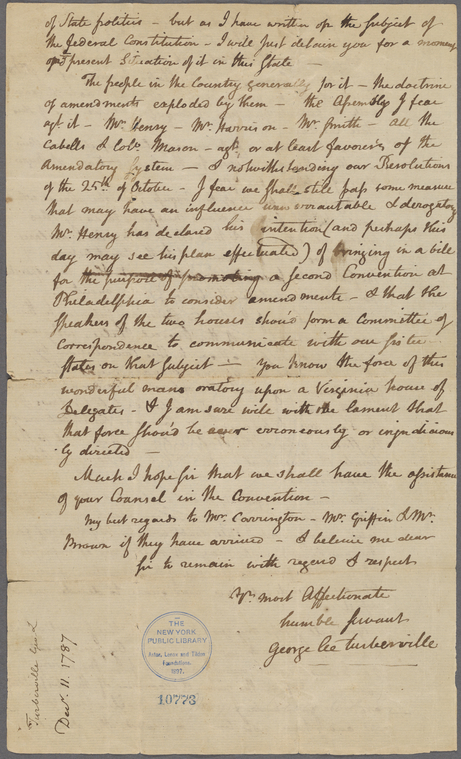 of State politics - but as I have written on the subject of
the Federal Constitution - I will just detain you for a moment
present Situation of it in this State -
The people in the Country generally for it - the doctrine
of amendments exploded by them - the Assembly I fear
agt. it - Mr. Henry - Mr. Harrison - Mr. Smith - all the
Cabells & Colo. Mason - agt. or at least favorers of the
Amendatory System - & notwithstanding our Resolutions
of the 25th of October - I fear we shall still pass some measure
that may have an influence & derogatory
Mr. Henry has declared his intention (and perhaps this
day may see his plan effectuated) of bringing in a bill
for the purpose of promoting a second Convention at
Philadelphia to consider amendments - & that the
speakers of the two houses should form a Committee of
Correspondence to communicate with our sister
states on that subject - You know the force of this
wonderful mans oratory upon a Virginia house of
Delegates - & I am sure will with me lament that
that force should be ever erroneously or injudicious
ly directed -
Much I hope sir that we shall have the assistance
of your Counsel in the Convention -
My best regards to Mr. Carrington - Mr. Griffin & Mr.
Brown if they have arrived - & believe me dear
sir to remain with regard & respect
Yr. most Affectionate
humble servant
George Lee Turberville
THE
NEW YORK
PUBLIC LIBRARY
Astor, Lenox and Tilden
Foundations.
1897.
10773
Turberville Geo L
Decr. 11. 1787